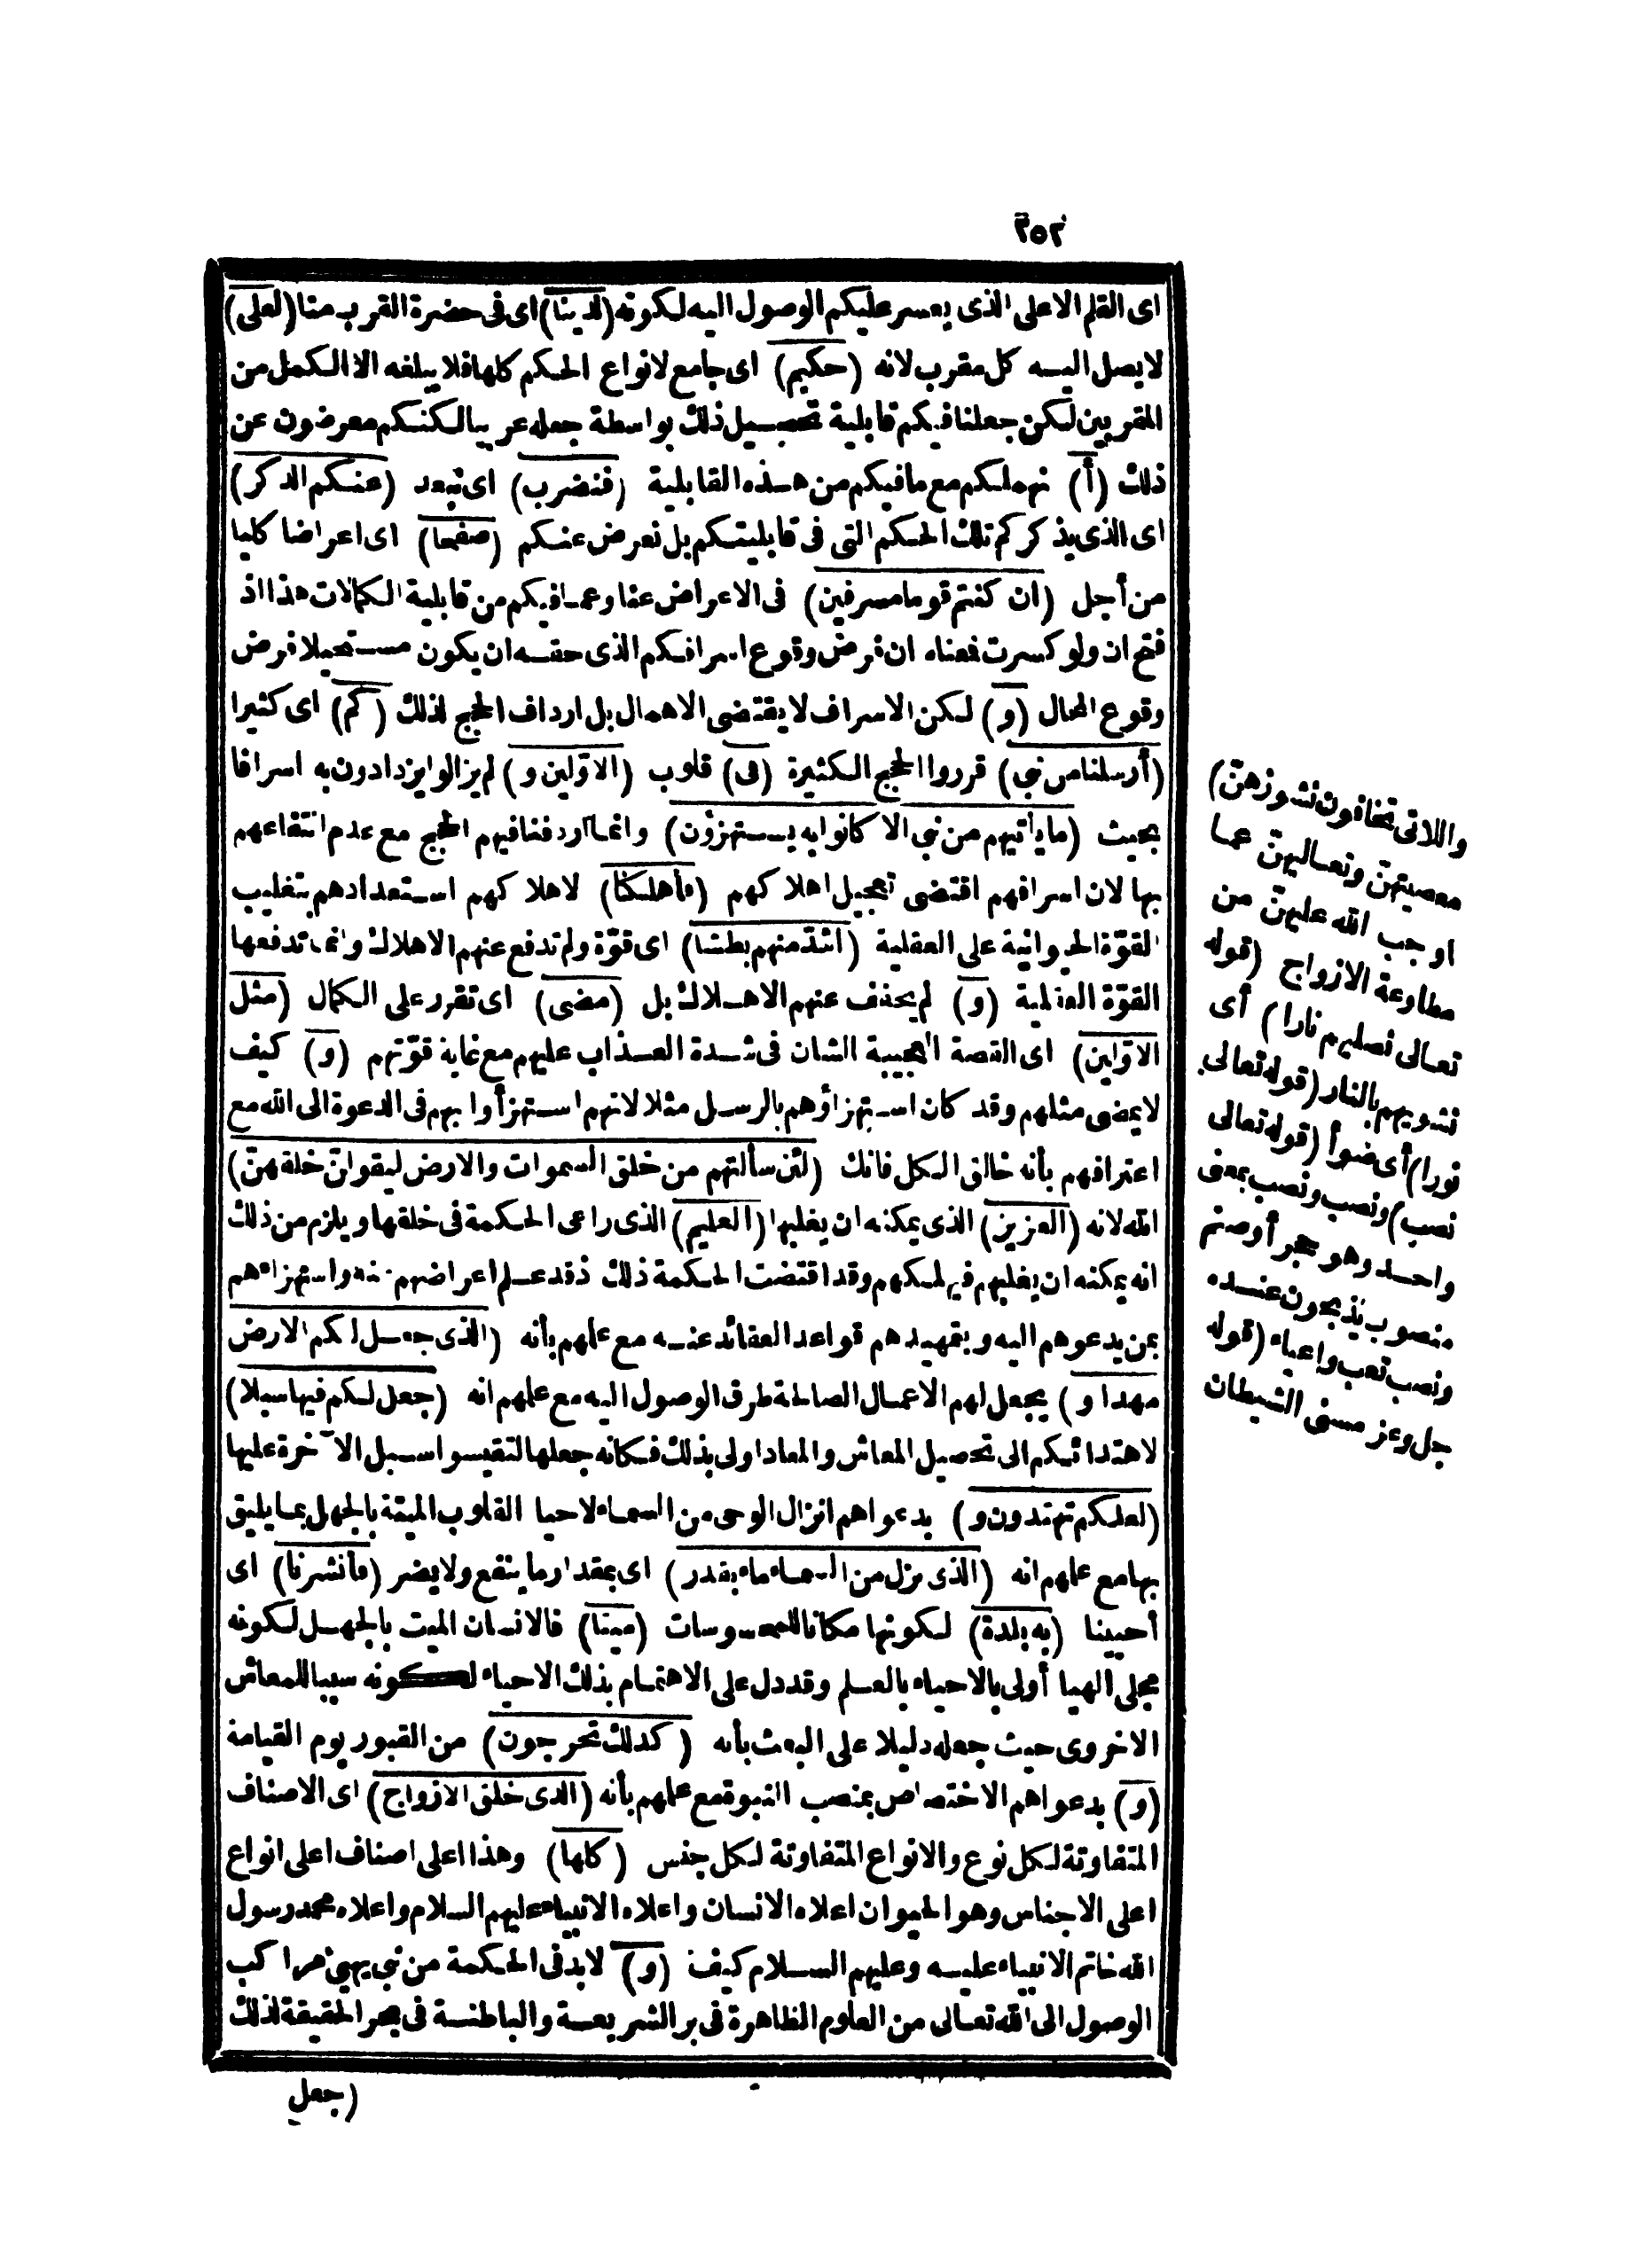 ٢٥٢
اى القلم الاعلى الذى يعسر عليكم الوصول اليه لكونه (لدينا) اى فى حضرة القرب منا (لعلى)
لا يصل اليه كل مقرب لانه (حكيم) اى جامع لانواع الحكم كلها فلا يبلغه الا الكمل من
المقربين لكن جعلنا فيكم قابلية تحصيل ذلك بواسطة جعله عربيا لكنكم معرضون عن
ذلك (أ) نهملكم مع ما فيكم من هذه القابلية (فنضرب) اى نبعد (عنكم الذكر)
اى الذى يذكركم تلك الحكم التى فى قابليتكم بل نعرض عنكم (صفحا) اى اعراضا كليا
من أجل (ان كنتم قوما مسرفين) فى الاعراض عنا وعما فيكم من قابلية الكمالات هذا اذ
فتح ان ولو كسرت فمعناه ان فرض وقوع اسرافكم الذى حقه ان يكون مستحيلا فرض
وقوع المحال (و) لكن الاسراف لا يقتضى الاهمال بل ارداف الحجج لذلك (كم) اى كثيرا
(أرسلنا من نبى) قرروا الحجج الكثيرة (فى) قلوب (الاوّلين و) لم يزالوا يزدادون به اسرافا
بحيث (ما يأتيهم من نبى الا كانوا به يستهزؤن) وانما اردفنا فيهم الحجج مع عدم انتفاعهم
بها لان اسرافهم اقتضى تعجيل اهلاكهم (فأهلكنا) لاهلاكهم استعدادهم بتغليب
القوّة الحيوانية على العقلية (اشدّ منهم بطشا) اى قوّة ولم تدفع عنهم الاهلاك وانما تدفعها
القوّة العقلية (و) لم يخفف عنهم الاهلاك بل (مضى) اى تقرر على الكمال (مثل
الاوّلين) اى القصة العجيبة الشان فى شدة العذاب عليهم مع غاية قوّتهم (و) كيف
لا يمضى مثلهم وقد كان استهزاؤهم بالرسل مثلا لانهم استهزأوا بهم فى الدعوة الى الله مع
اعترافهم بأنه خالق الكل فانك (لئن سألتهم من خلق السموات والارض ليقولنّ خلقهنّ)
الله لانه (العزيز) الذى يمكنه ان يغلبها (العليم) الذى راعى الحكمة فى خلقها ويلزم من ذلك
انه يمكنه ان يغلبهم فيهلكهم وقد اقتضت الحكمة ذلك فقد علم اعراضهم عنه واستهزاءهم
بمن يدعوهم اليه وبتمهيدهم قواعد العقائد عنه مع علمهم بأنه (الذى جعل لكم الارض
مهدا و) بجعل لهم الاعمال الصالحة طرق الوصول اليه مع علمهم انه (جعل لكم فيها سبلا)
لاهتدائكم الى تحصيل المعاش والمعاد اولى بذلك فكانه جعلها لتقيسوا سبل الآخرة عليها
(لعلكم تهتدون و) بدعواهم انزال الوحى من السماء لاحيا القلوب الميتة بالجهل بما يليق
بها مع علمهم انه (الذى نزل من السماء ماء بقدر) اى بمقدار ما ينفع ولا يضر (فأنشرنا) اى
أحيينا (به بلدة) لكونها مكانا للمحسوسات (ميتا) فالانسان الميت بالجهل لكونه
مجلى الهيا أولى بالاحياء بالعلم وقد دل على الاهتمام بذلك الاحياء لكونه سببا للمعاش
الاخروى حيث جعله دليلا على البعث بأنه (كذلك تخرجون) من القبور يوم القيامة
(و) بدعواهم الاختصاص بمنصب النبوة مع علمهم بأنه (الذى خلق الازواج) اى الاصناف
المتفاوتة لكل نوع والانواع المتفاوتة لكل جنس (كلها) وهذا اعلى اصناف اعلى انواع
اعلى الاجناس وهو الحيوان اعلاه الانسان واعلاه الانبياء عليهم السلام واعلاه محمد رسول
الله خاتم الانبياء عليه وعليهم السلام كيف (و) لا بد فى الحكمة من نبى يهيئ مراكب
الوصول الى الله تعالى من العلوم الظاهرة فى بر الشريعة والباطنة فى بحر الحقيقة لذلك
(جعل
واللاتى تخافون نشوزهنّ)
معصيتهنّ وتعاليهنّ عما
اوجب الله عليهنّ من
مطاوعة الازواج (قوله
تعالى نصليهم نارا) أى
نشويهم بالنار (قوله تعالى
نورا) أى ضوأ (قوله تعالى
نصب) ونصب ونصب بمعنى
واحد وهو حجر أو صنم
منصوب يذبحون عنده
ونصب تعب واعياء (قوله
جل وعز مسنى الشيطان